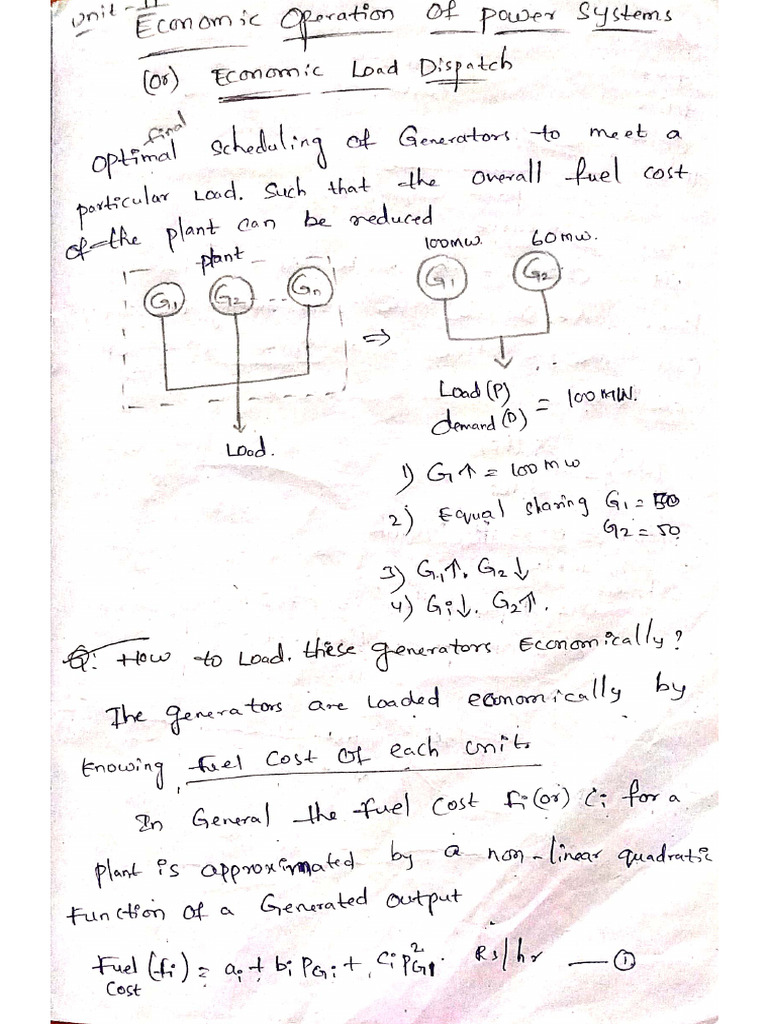 Unit-II
Economic Operation of Power Systems
(or) Economic Load Dispatch
final
Optimal Scheduling of Generators to meet a
particular Load. Such that the overall fuel cost
of the plant can be reduced
plant
G1 G2 Gn
Load.
⇒
100mw. 60mw.
G1 G2
Load(P)
demand(D) = 100MW.
1) G↑ = 100mw
2) Equal sharing G1 = 50
G2 = 50
3) G1↑. G2↓
4) Gi↓. G2↑.
Q: How to Load. these generators Economically?
The generators are loaded economically by
knowing fuel cost of each unit.
In General the fuel cost fi(or) Ci for a
plant is approximated by a non-linear quadratic
Function of a Generated output
Fuel (fi) = ai + bi PGi + Ci P²Gi. Rs/hr — ①
Cost